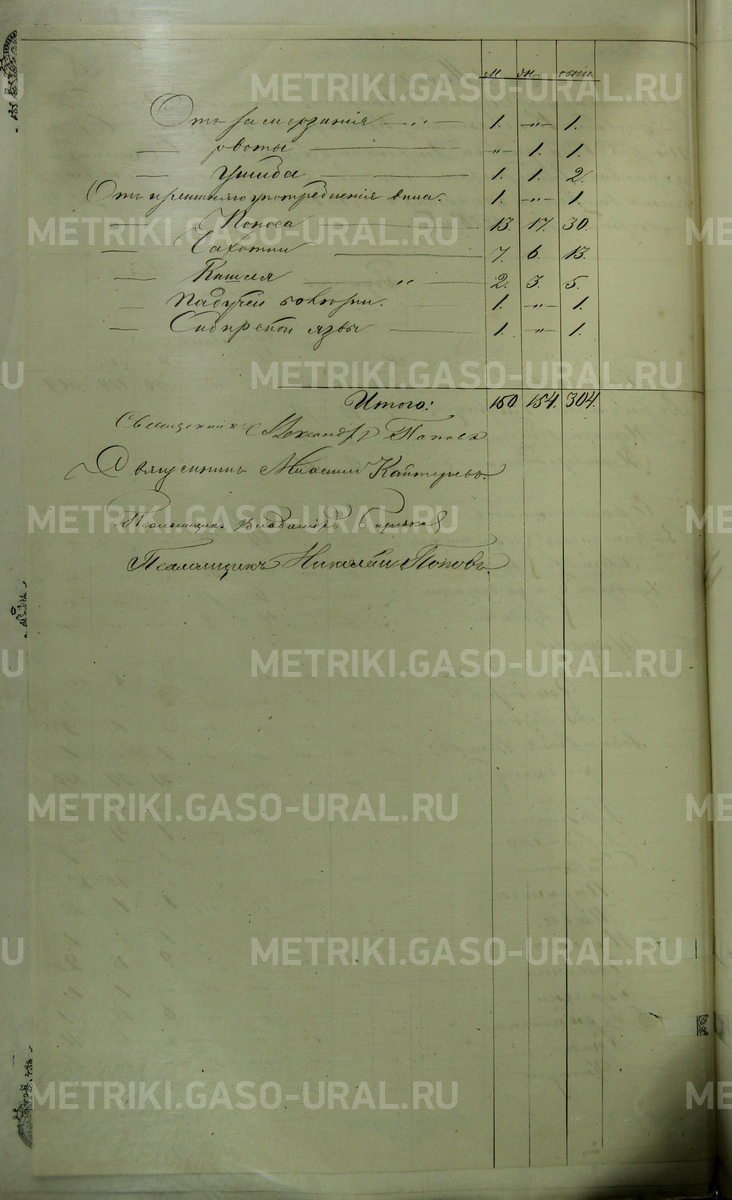 м. ж. обоего
Отъ замерзанія — " — 1. —"— 1.
— рвоты — —"— 1. 1.
— Ушиба — 1. 1. 2.
Отъ излишняго употребленія вина. 1. —"— 1.
— Поноса — 13. 17. 30.
— Чахотки — 7. 6. 13.
— Кашля — " 2. 3. 5.
— Падучей болѣзни. 1. —"— 1.
— Сибирской язвы — 1. —"— 1.
Итого: 150. 154. 304.
Священникъ Александръ Поповъ
Священникъ
Псаломщикъ Владиміръ
Псаломщикъ Николай Поповъ.
METRIKI.GASO-URAL.RU